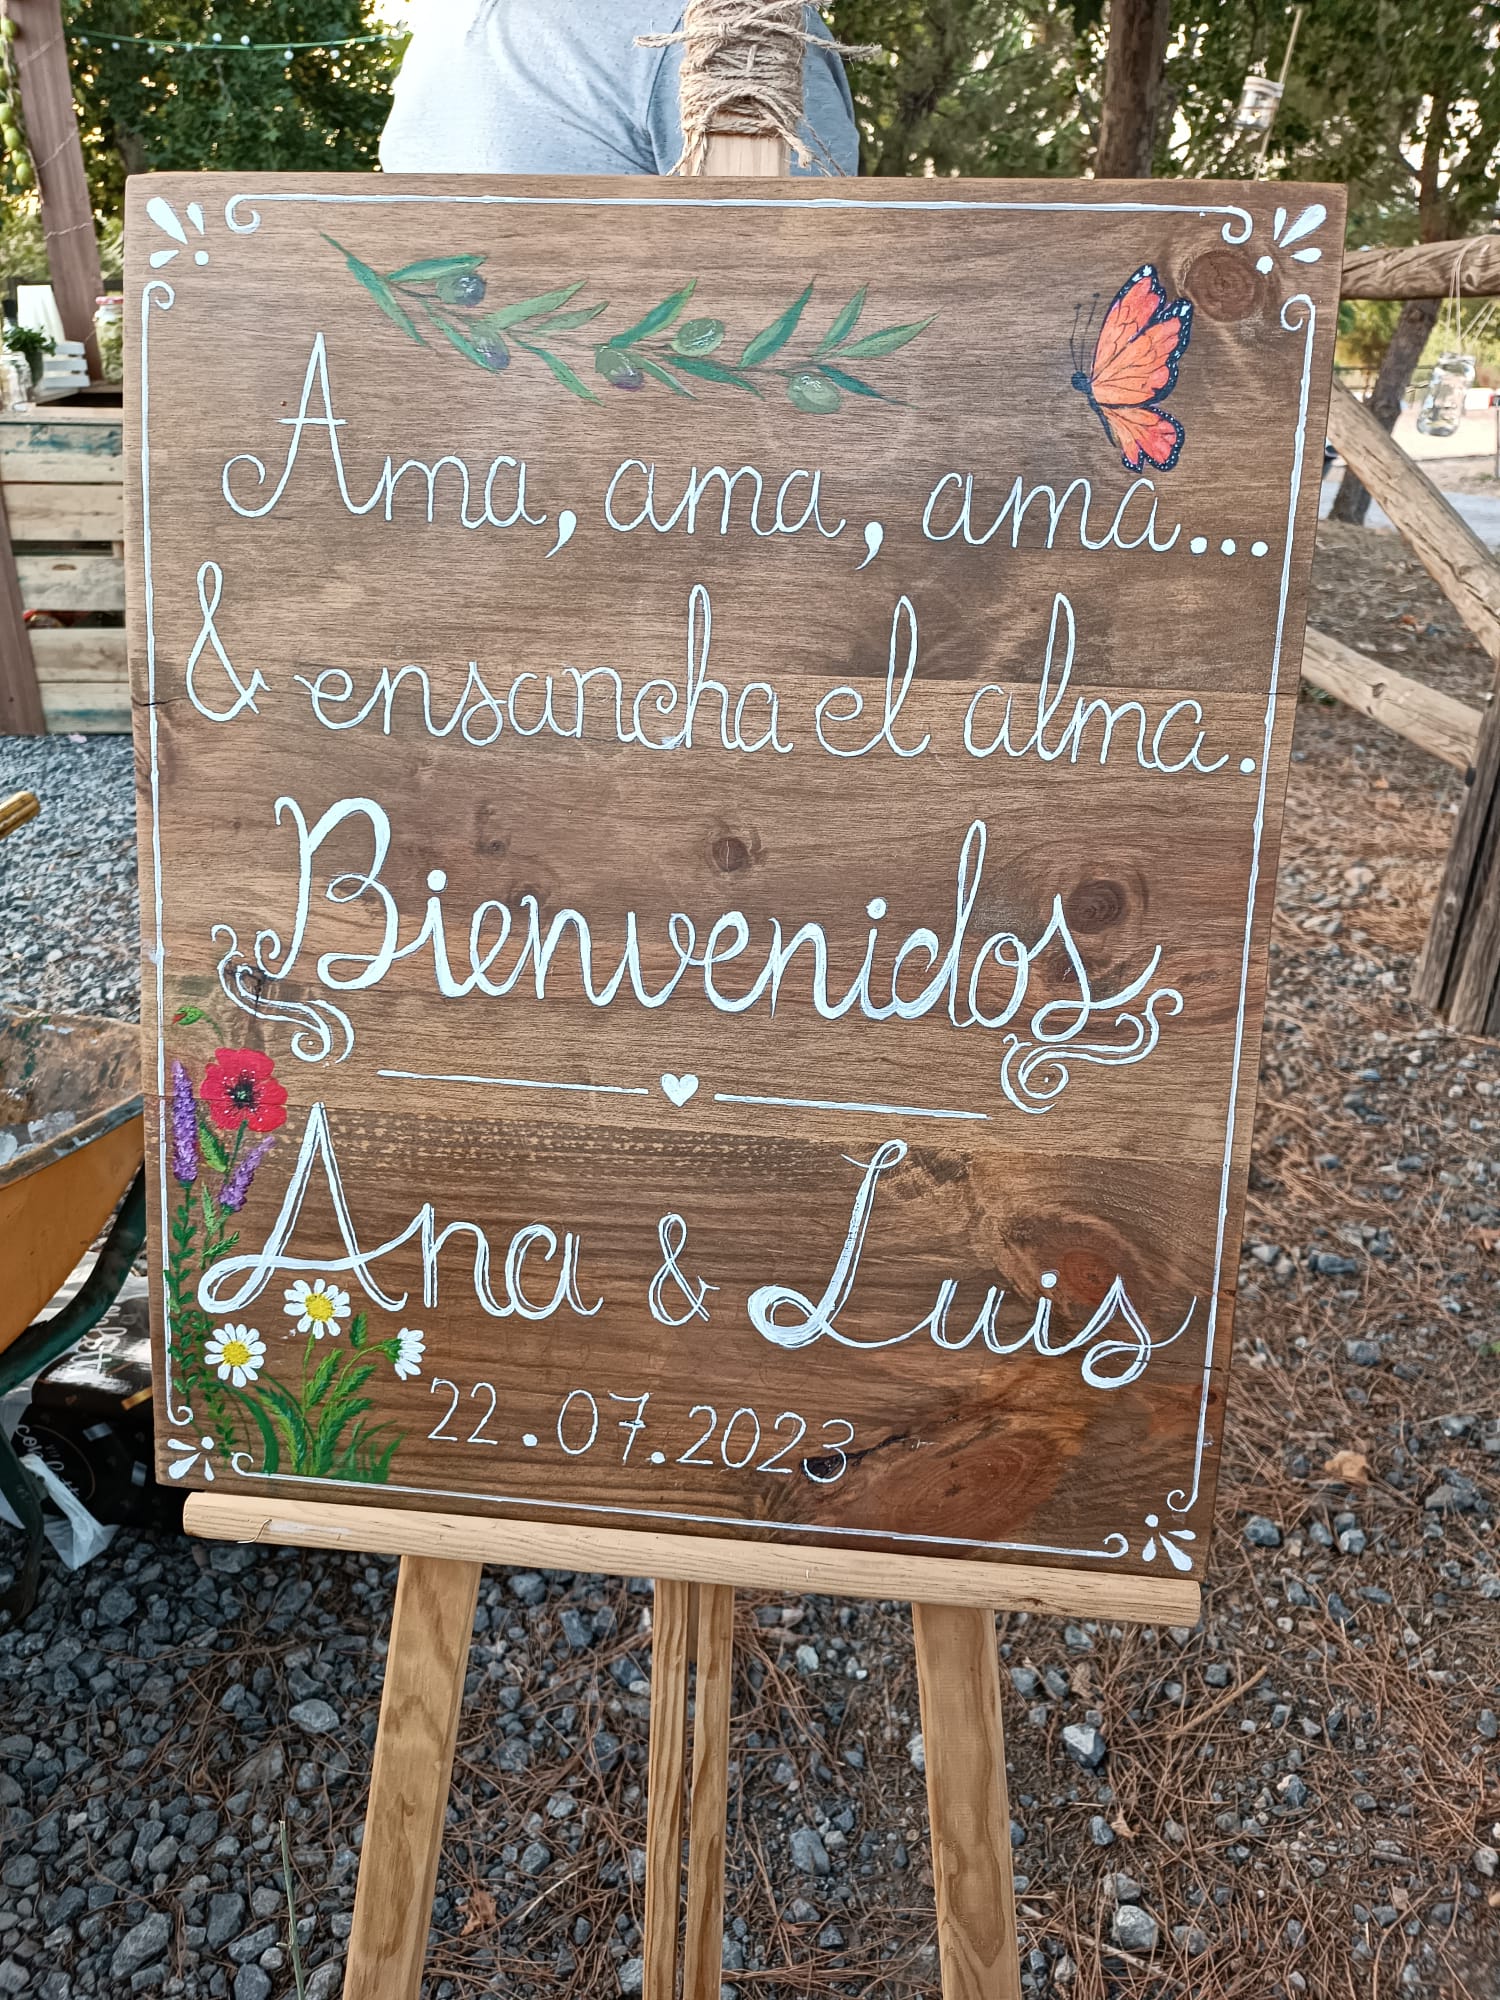 Ama, ama, ama...
& ensancha el alma.
Bienvenidos
Ana & Luis
22.07.2023